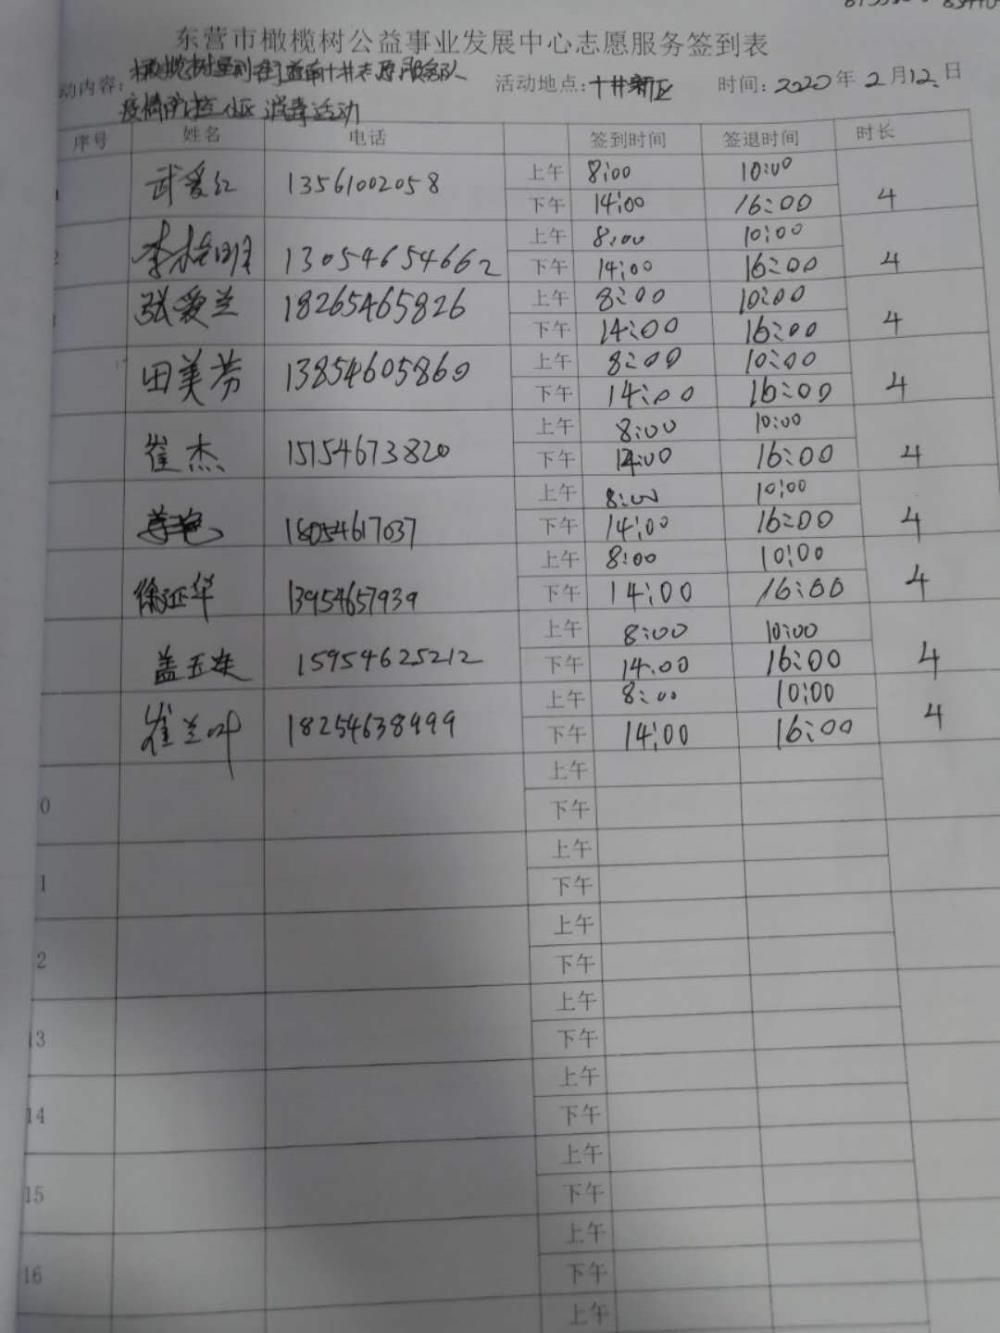 东营市橄榄树公益事业发展中心志愿服务签到表
动内容: 橄榄树垦利街道南十井志愿服务队 活动地点: 十井新区 时间: 2020年2月12日
疫情防控社区消毒活动
序号 姓名 电话 签到时间 签退时间 时长
武爱红 13561002058 上午 8:00 10:00 4
下午 14:00 16:00
2 李 明 13054654662 上午 8:00 10:00 4
下午 14:00 16:00
张爱兰 18265465826 上午 8:00 10:00 4
下午 14:00 16:00
田美芳 13854605860 上午 8:00 10:00 4
下午 14:00 16:00
崔杰 15154673820 上午 8:00 10:00 4
下午 14:00 16:00
18054617037 上午 8:00 10:00 4
下午 14:00 16:00
徐证华 13954657939 上午 8:00 10:00 4
下午 14:00 16:00
盖五洪 15954625212 上午 8:00 10:00 4
下午 14.00 16:00
崔兰叶 18254638999 上午 8:00 10:00 4
下午 14:00 16:00
0 上午
下午
1 上午
下午
2 上午
下午
13 上午
下午
14 上午
下午
15 上午
下午
16 上午
下午
上午